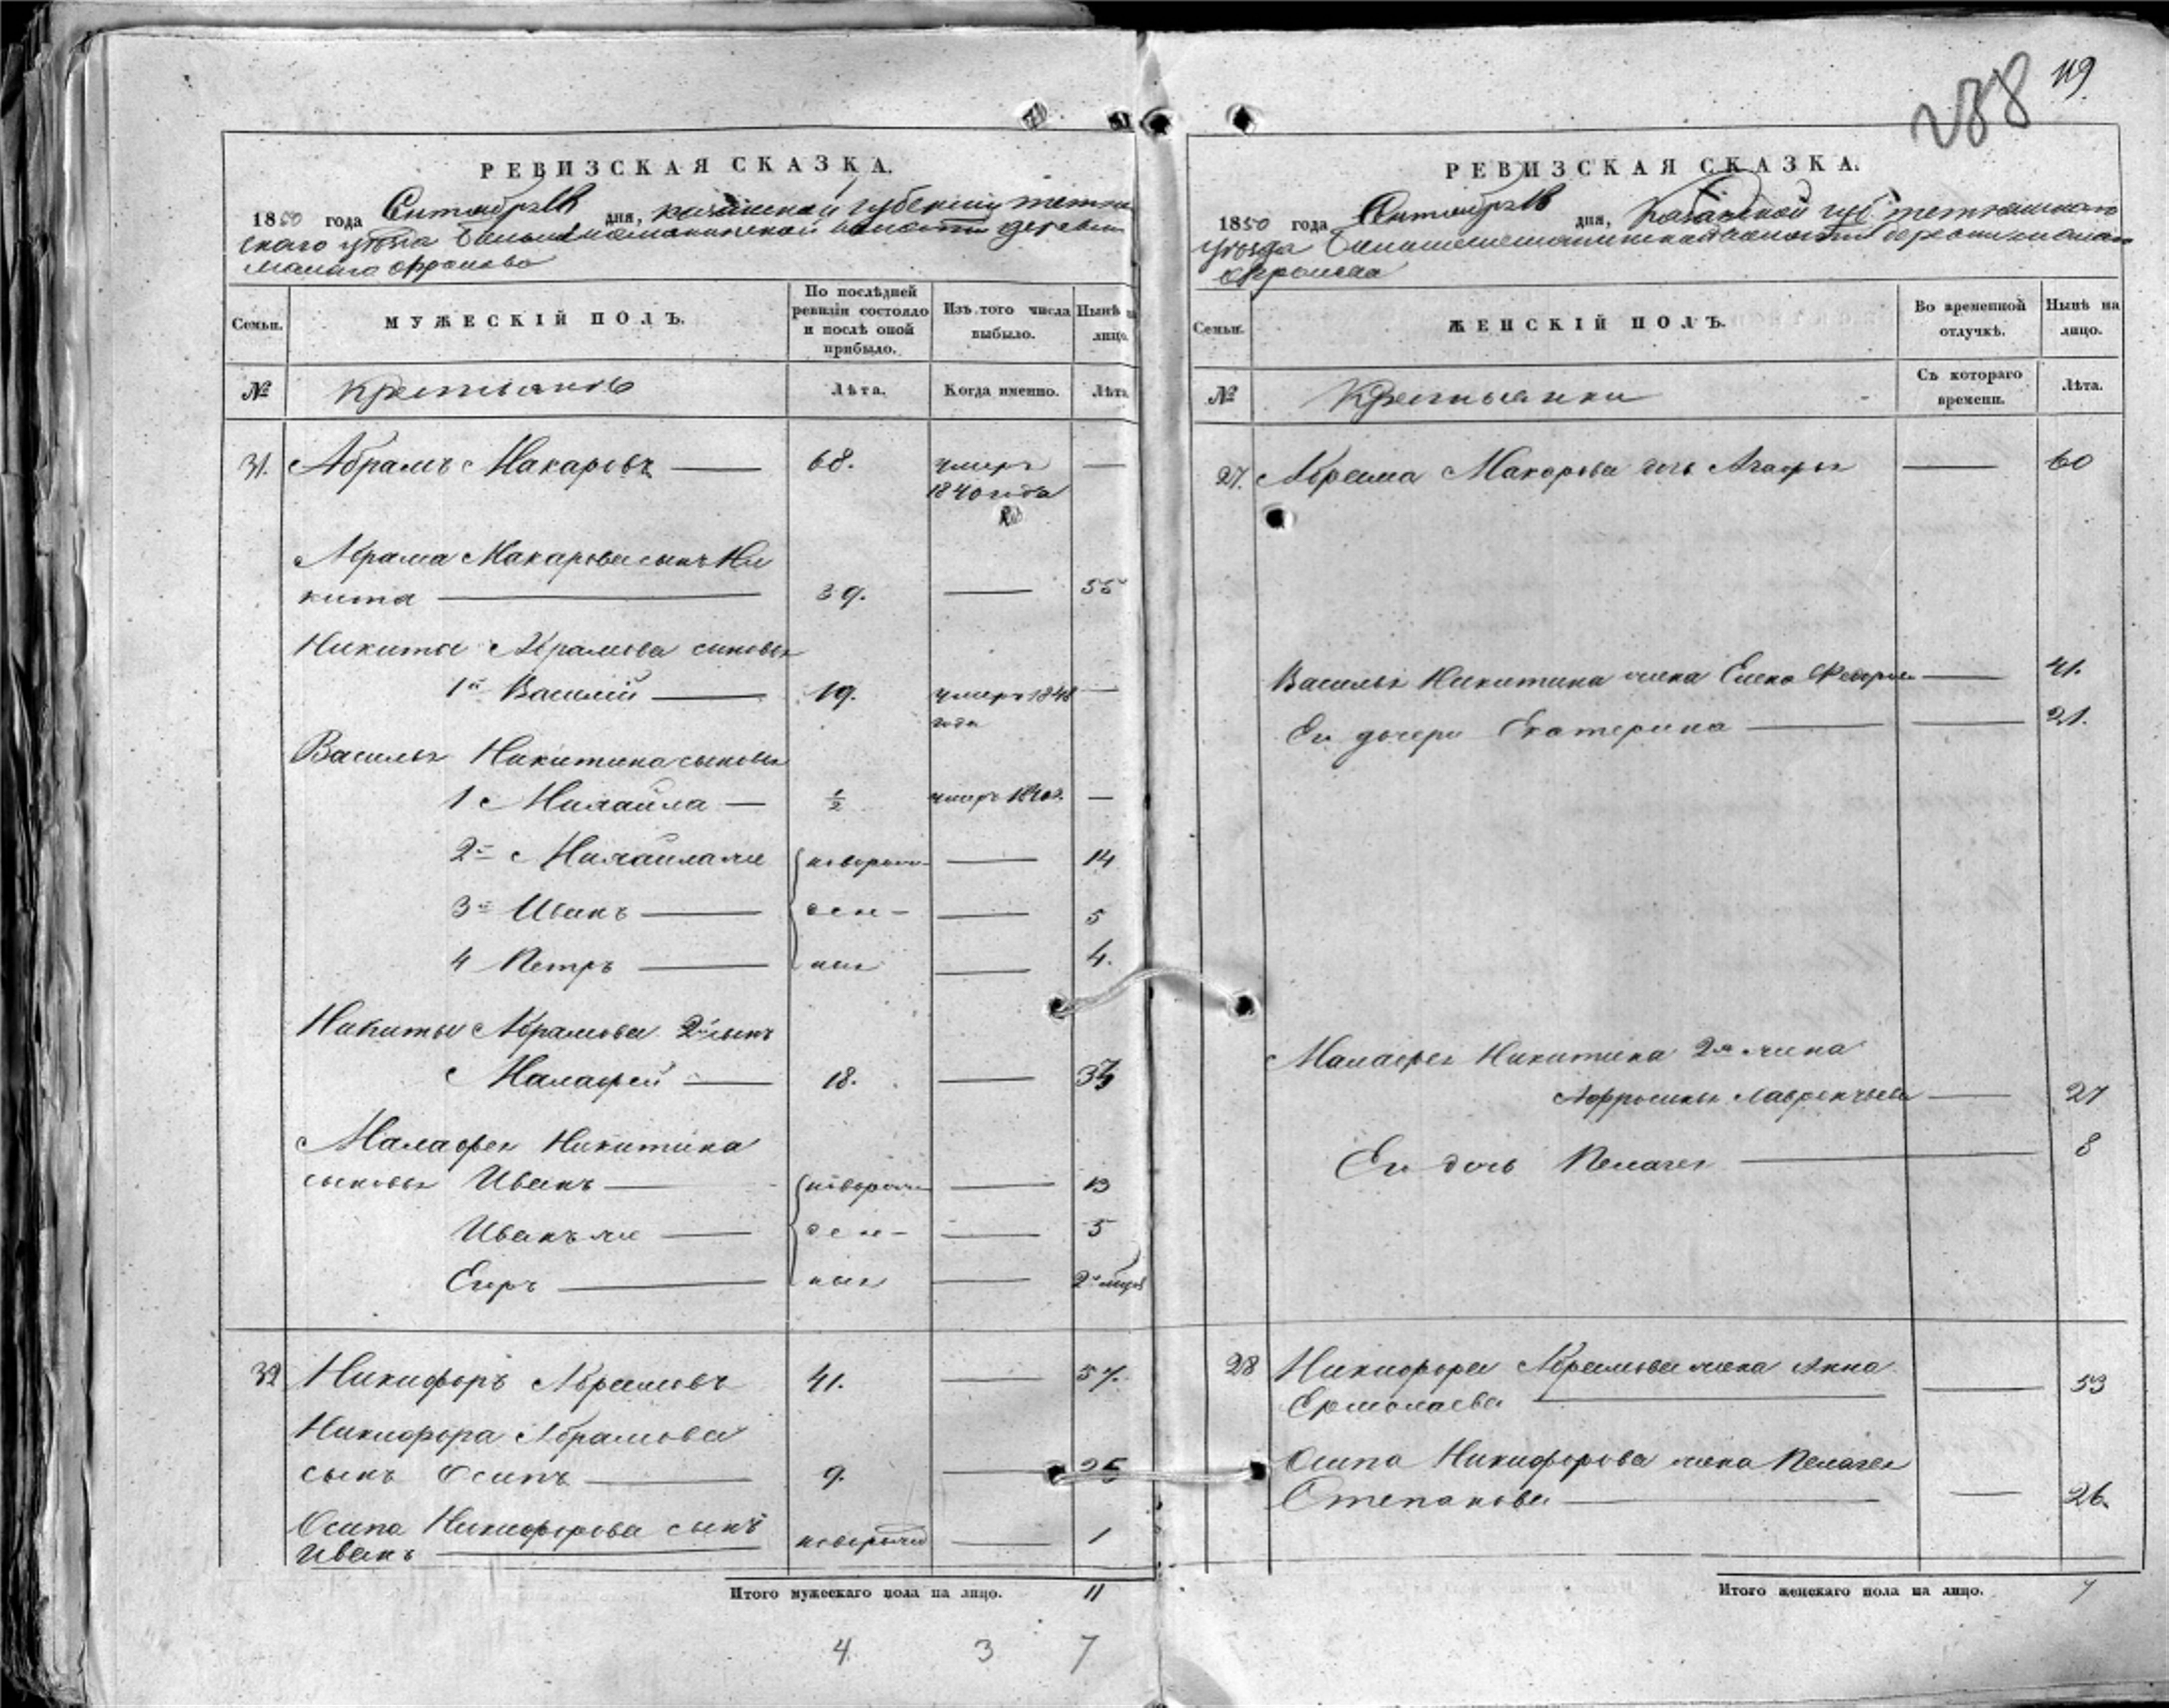 119
288
РЕВИЗСКАЯ СКАЗКА.
1850 года Сентября дня, Казанской губернии Тетюш
скаго уѣзда волости деревни
Малаго
Семьи.
МУЖЕСКІЙ ПОЛЪ.
По послѣдней ревизіи состояло и послѣ оной прибыло.
Изъ того числа выбыло.
Нынѣ на лицо.
№
Крестьянъ
Лѣта.
Когда именно.
Лѣта.
31. Абрамъ Макаровъ — 68. умеръ —
1840 года
Абрама Макарова сынъ Ни
кита — 39. — 55
Никиты Абрамова сыновья
1й Василій — 19. умеръ 1848 —
года
Василья Никитина сыновья
1 Михайла — 1/2 умеръ 1840г. —
2й Михайла же новорож — 14
3й Иванъ — ден — 5
4 Петръ — ныя — 4.
Никиты Абрамова 2й сынъ
Малафей — 18. — 33
Малафея Никитина
сыновья Иванъ — новорож — 13
Иванъ же — ден — 5
Егоръ — ныя — 2 мѣся
32 Никифоръ Абрамовъ 41. — 57.
Никифора Абрамова
сынъ Осипъ — 9. — 25
Осипа Никифорова сынъ
Иванъ — новорож — 1
Итого мужескаго пола на лицо. 11
4 3 7
РЕВИЗСКАЯ СКАЗКА.
1850 года Сентября дня, Казанской губ Тетюшскаго
уѣзда волости деревни Малаго
Семьи.
ЖЕНСКІЙ ПОЛЪ.
Во временной отлучкѣ.
Нынѣ на лицо.
№
Крестьянки
Съ котораго времени.
Лѣта.
27. Абрама Макарова дочь Агафья — 60
Василья Никитина жена Елена Федорова — 41.
Ея дочери Екатерина — 21.
Малафея Никитина 2я жена
Афросинья Лаврентьева — 27
Его дочь Пелагея — 8
28 Никифора Абрамова жена Анна
Ермолаева — 53
Осипа Никифорова жена Пелагея
Степанова — 26.
Итого женскаго пола на лицо. 7